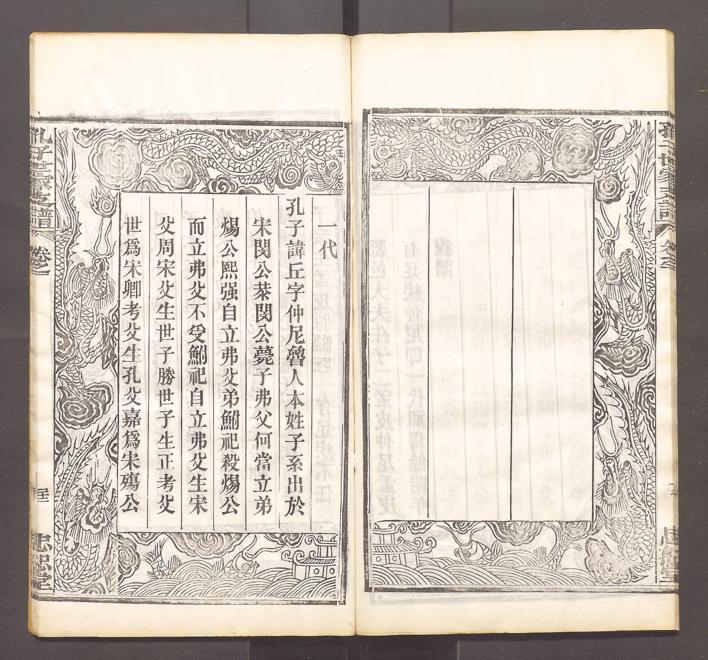 孔子世家支譜
一代
孔子諱丘字仲尼魯人本姓子系出於
宋閔公㳟閔公薨子弗父何當立弟
煬公熙强自立弗父弟鮒祀殺煬公
而立弗父不受鮒祀自立弗父生宋
父周宋父生世子勝世子生正考父
世爲宋卿考父生孔父嘉爲宋殤公
孔子世家支譜 卷之一
忠恕堂